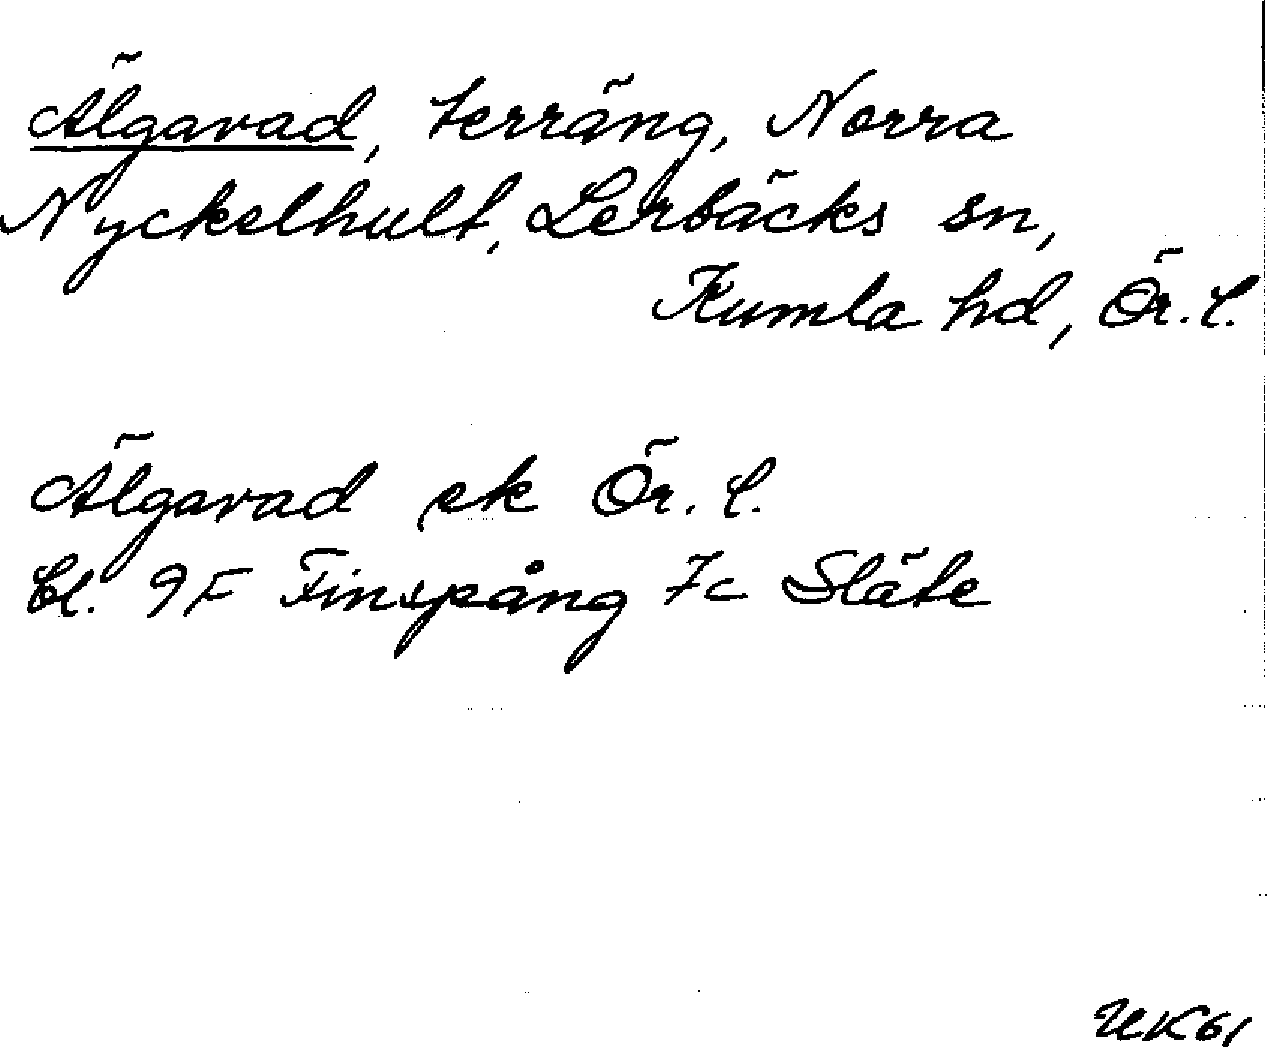 Älgavad, terräng, Norra
Nyckelhult, Lerbäcks sn,
Kumla hd, Ör. l.
Älgavad ek Ör. l.
bl. 9F Finspång 7c Släte
UK61